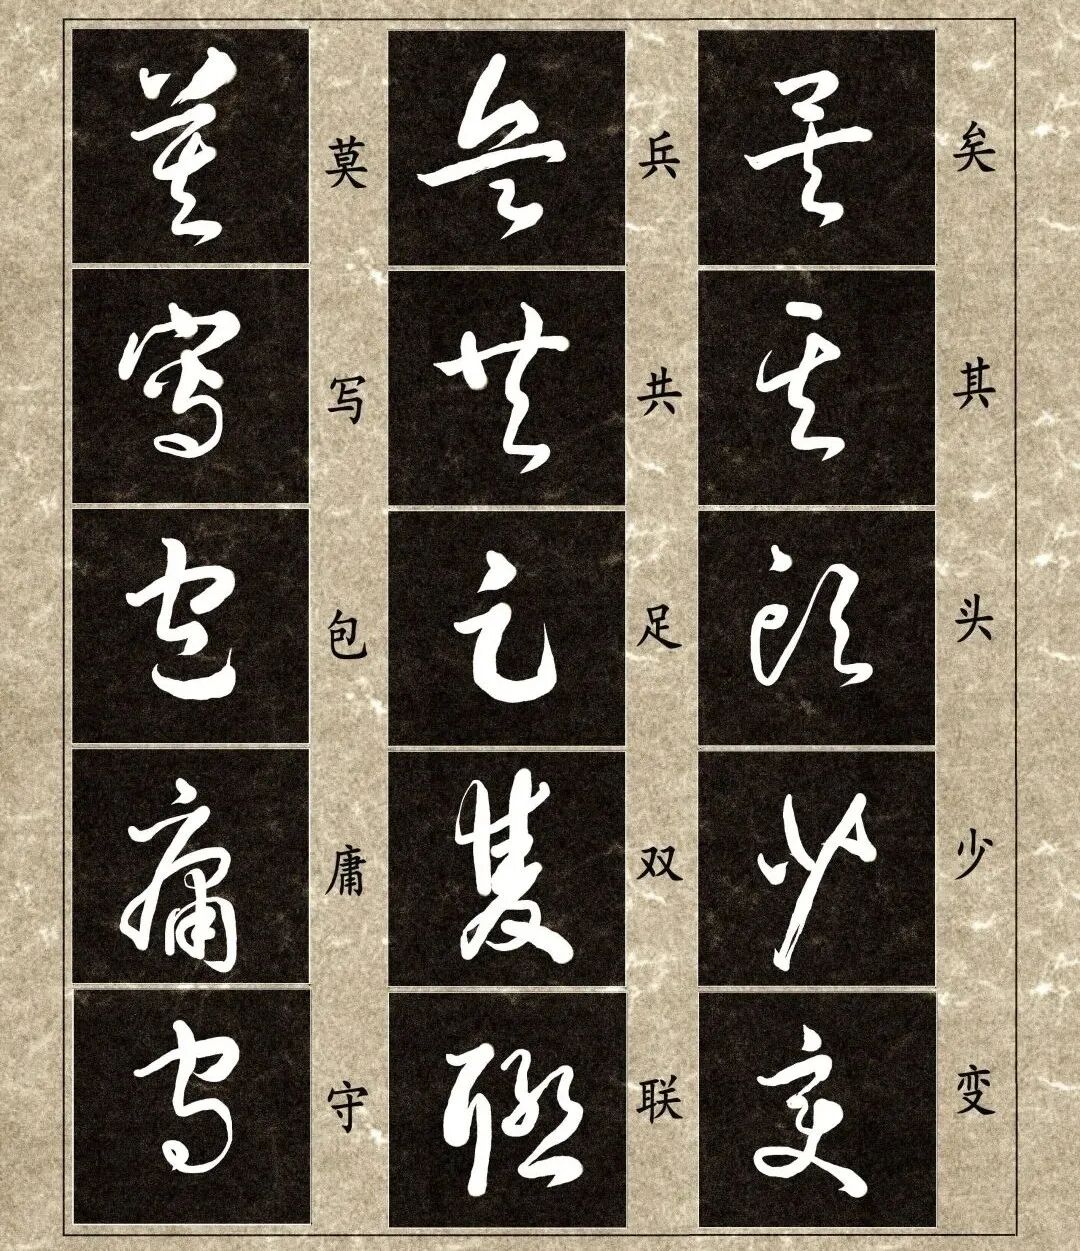 莫 兵 矣
写 共 其
包 足 头
庸 双 少
守 联 变